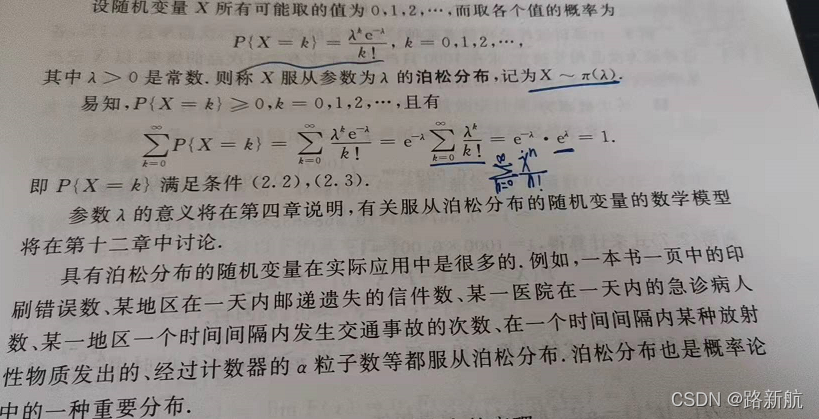 设随机变量 X 所有可能取的值为 0,1,2,⋯,而取各个值的概率为
P{X = k} = λᵏe^{-λ}/k!, k = 0,1,2,⋯,
其中 λ > 0 是常数. 则称 X 服从参数为 λ 的泊松分布,记为 X ~ π(λ).
易知, P{X = k} ⩾ 0, k = 0,1,2,⋯,且有
∑_{k=0}^{∞} P{X = k} = ∑_{k=0}^{∞} λᵏe^{-λ}/k! = e^{-λ} ∑_{k=0}^{∞} λᵏ/k! = e^{-λ} • e^{λ} = 1.
∑_{n=0}^{∞} xⁿ/n!
即 P{X = k} 满足条件 (2.2),(2.3).
参数 λ 的意义将在第四章说明,有关服从泊松分布的随机变量的数学模型
将在第十二章中讨论.
具有泊松分布的随机变量在实际应用中是很多的. 例如,一本书一页中的印
刷错误数、某地区在一天内邮递遗失的信件数、某一医院在一天内的急诊病人
数、某一地区一个时间间隔内发生交通事故的次数、在一个时间间隔内某种放射
性物质发出的、经过计数器的 α 粒子数等都服从泊松分布. 泊松分布也是概率论
中的一种重要分布.
CSDN @路新航